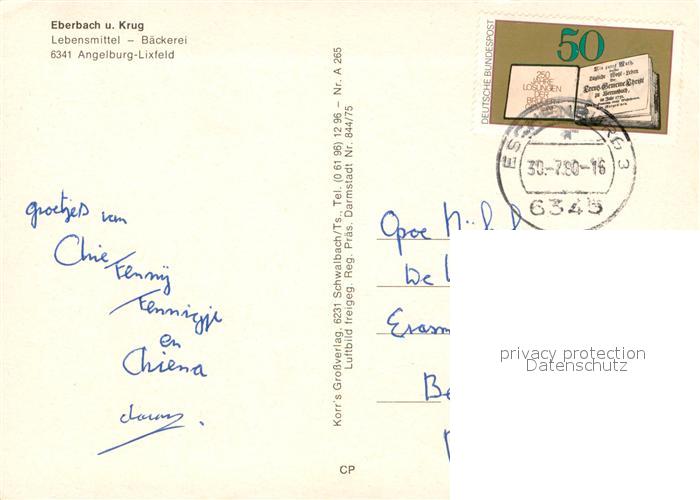 Eberbach u. Krug
Lebensmittel – Bäckerei
6341 Angelburg-Lixfeld
DEUTSCHE BUNDESPOST
50
250
JAHRE
LOSUNGEN
DER
BRÜDER-
30.-7.80-16
6345
groetjes van
Chie
Tennij
Tennigje
en
Chiena
Korr's Großverlag, 6231 Schwalbach/Ts., Tel. (0 61 96) 12 96 – Nr. A 265
Luftbild freigeg. Reg. Präs. Darmstadt Nr. 844/75
Opoe
De
Erasm
Be
privacy protection
Datenschutz
CP